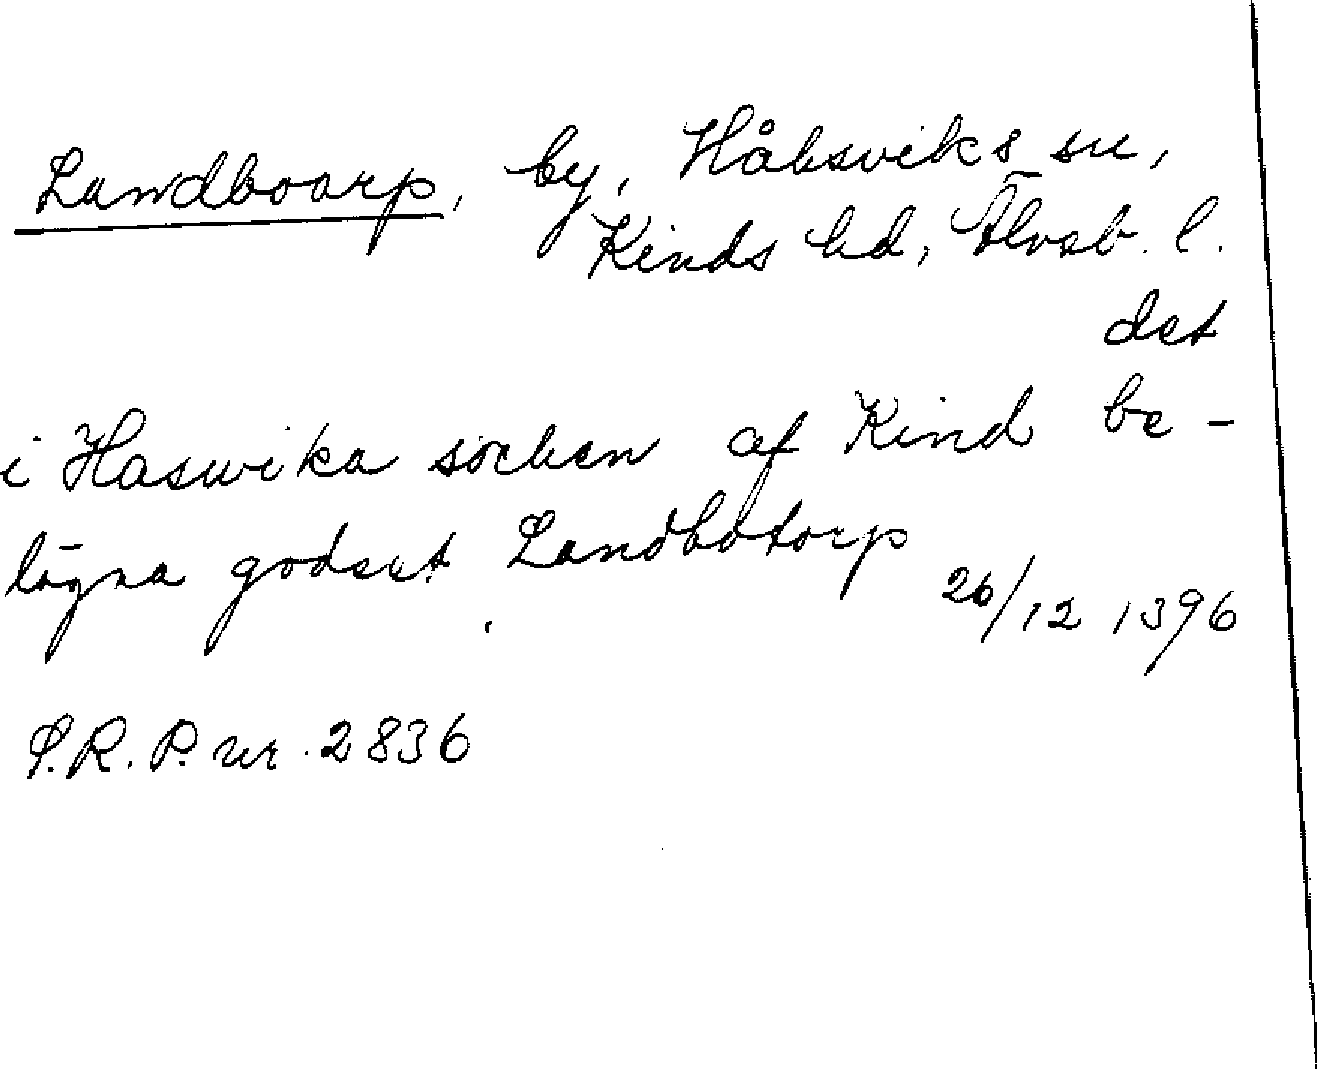 Landboarp, by, Håksviks sn,
Kinds hd, Älvsb. l.
det
i Haswika sochen af Kind be-
lägna godset Landbotorp
26/12 1396
S.R.P. nr. 2836